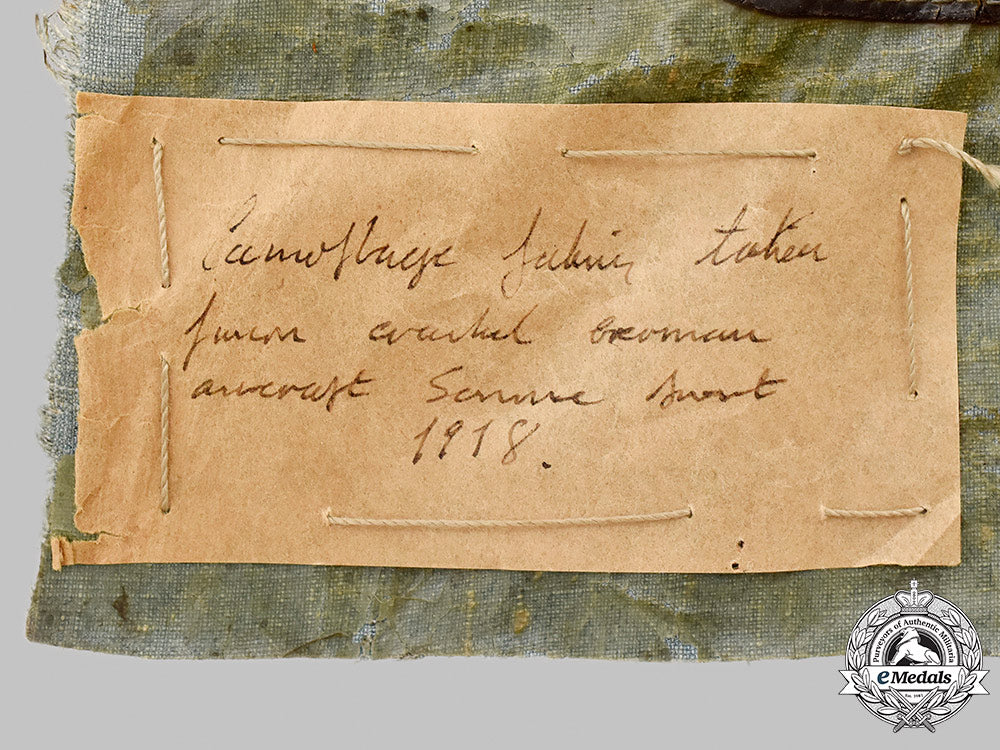 Camoflauge fabric taken
from crashed German
aircraft Somme front
1918.
Purveyors of Authentic Militaria
eMedals
Est. 1967